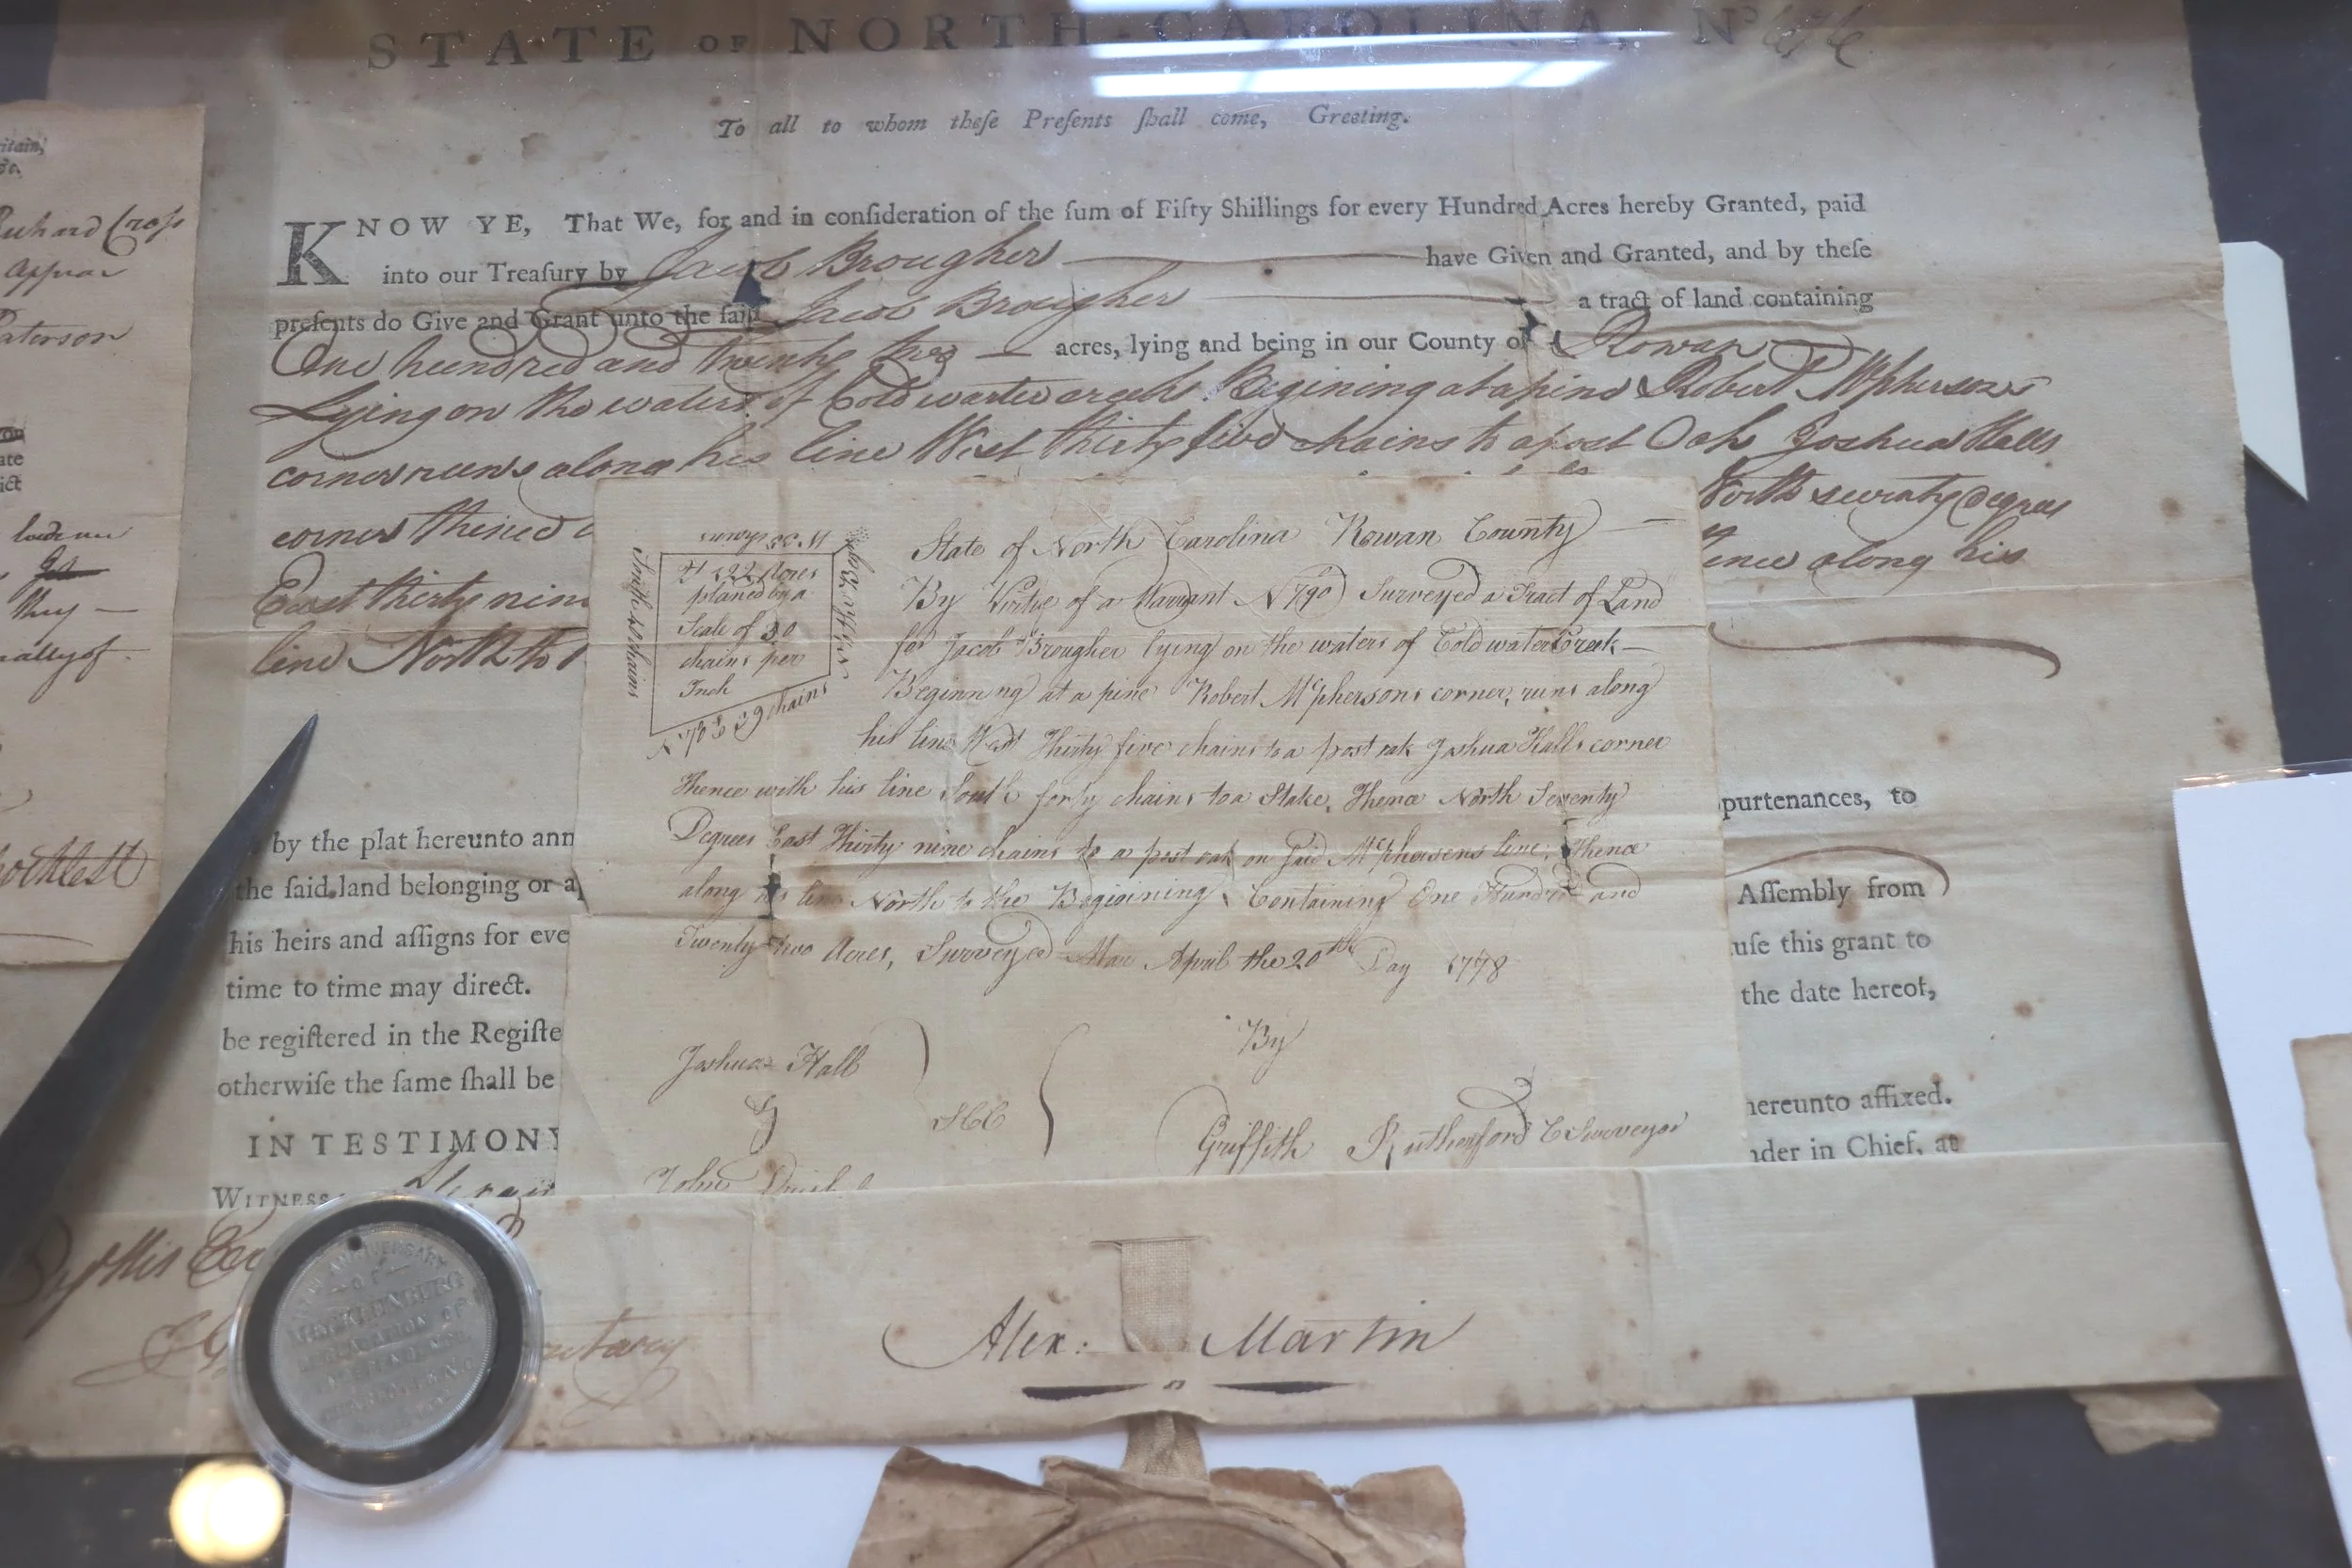 STATE OF NORTH-CAROLINA, No
To all to whom theſe Preſents ſhall come, Greeting.
KNOW YE, That We, for and in conſideration of the ſum of Fifty Shillings for every Hundred Acres hereby Granted, paid
into our Treaſury by Jacob Brougher have Given and Granted, and by theſe
preſents do Give and Grant unto the ſaid Jacob Brougher a tract of land containing
One hundred and twenty two acres, lying and being in our County of Rowan
Lying on the waters of Cold warter creek Begining at a pine Robert McPhersons
corner runs along his line West thirty five chains to a post Oak Joshua Halls
corner thence North seventy degrees
East thirty nine ence along his
line North to
by the plat hereunto ann purtenances, to
the ſaid land belonging or a Aſſembly from
his heirs and aſſigns for eve uſe this grant to
time to time may direct. the date hereof,
be regiſtered in the Regiſte
otherwiſe the ſame ſhall be hereunto affixed.
IN TESTIMONY nder in Chief, at
WITNESS
Alex: Martin
State of North Carolina Rowan County
By Virtue of a Warrant N 790 Surveyed a Tract of Land
for Jacob Brougher lying on the waters of Coldwater Creek
Beginning at a pine Robert McPhersons corner, runs along
his line West Thirty five chains to a post oak Joshua Halls corner
Thence with his line South forty chains to a Stake, Thence North Seventy
Degrees East Thirty nine chains to a post oak on Said McPhersons line, Thence
along his line North to the Begioining Containing One Hundred and
Twenty two Acres, Surveyed April the 20th Day 1778
By
Joshua Hall
SCC
Griffith Rutherford C Surveyor
John
W 35 chains
122 Acres
planed by a
Scale of 30
chains per
Inch
South 40 chains
N 70 E 39 chains
ANNIVERSARY
OF
MECKLENBURG
DECLARATION OF
itain,
&c.
Richard Cross
Appear
Paterson
ate
ict
They